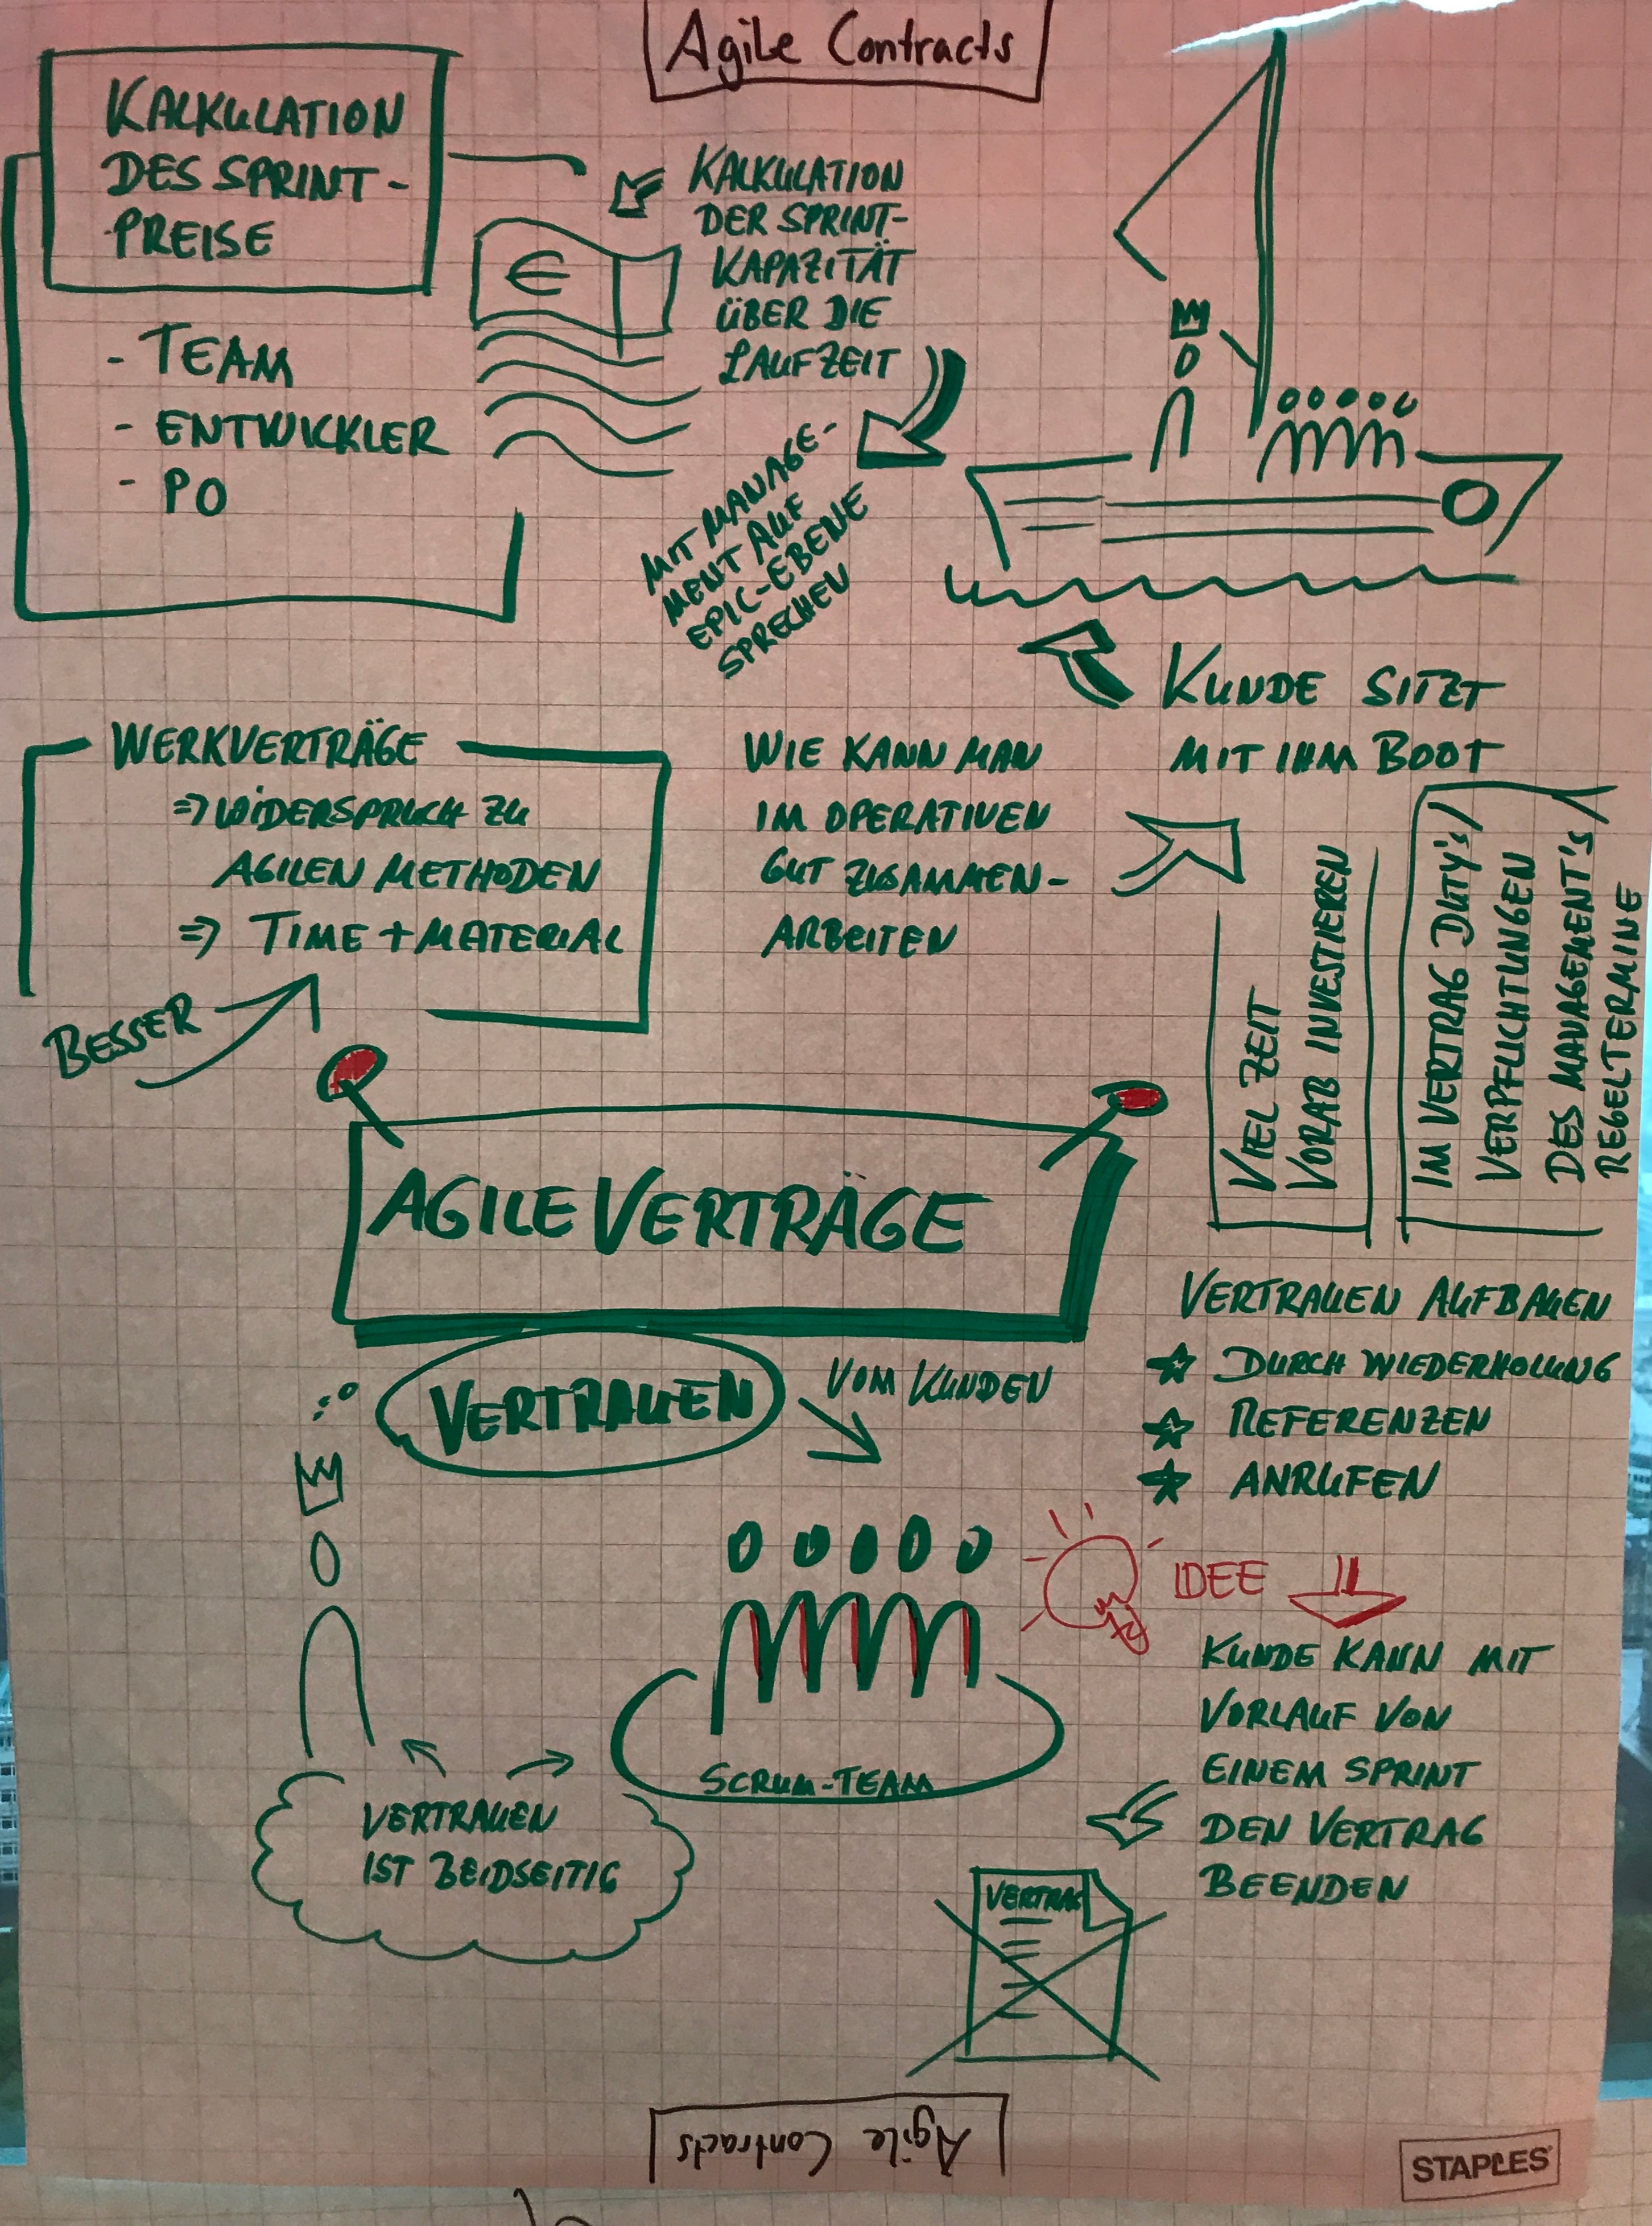 Agile Contracts
KALKULATION
DES SPRINT-
PREISE
- TEAM
- ENTWICKLER
- PO
€
KALKULATION
DER SPRINT-
KAPAZITÄT
ÜBER DIE
LAUFZEIT
MIT MANAGE-
MENT AUF
EPIC-EBENE
SPRECHEN
KUNDE SITZT
MIT IHM BOOT
WERKVERTRÄGE
=> WIDERSPRUCH ZU
AGILEN METHODEN
=> TIME + MATERIAL
BESSER
WIE KANN MAN
IM OPERATIVEN
GUT ZUSAMMEN-
ARBEITEN
VIEL ZEIT
VORAB INVESTIEREN
IM VERTRAG DUTY'S/
VERPFLICHTUNGEN
DES MANAGEMENT'S/
REGELTERMINE
AGILE VERTRÄGE
VERTRAUEN
VOM KUNDEN
VERTRAUEN AUFBAUEN
☆ DURCH WIEDERHOLUNG
☆ REFERENZEN
☆ ANRUFEN
IDEE
KUNDE KANN MIT
VORLAUF VON
EINEM SPRINT
DEN VERTRAG
BEENDEN
SCRUM-TEAM
VERTRAUEN
IST BEIDSEITIG
VERTRAG
Agile Contracts
STAPLES